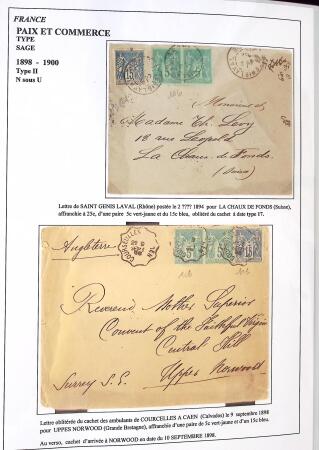 FRANCE
PAIX ET COMMERCE
TYPE
SAGE
1898 - 1900
Type II
N sous U
Monsieur et
Madame Ch. Lévy
18 rue Léopold
La Chaux de Fonds
(Suisse)
Lettre de SAINT GENIS LAVAL (Rhône) postée le 2 ???? 1894 pour LA CHAUX DE FONDS (Suisse),
affranchie à 25c, d'une paire 5c vert-jaune et du 15c bleu, oblitéré de cachet à date type 17.
Angleterre
COURSEULLES
Reverend Mother Superior
Convent of the Faithful Virgin
Central Hill
Upper Norwood
Surrey S.E.
Lettre oblitérée du cachet des ambulants de COURCELLES A CAEN (Calvados) le 9 septembre 1898
pour UPPES NORWOOD (Grande Bretagne), affranchie d'une paire de 5c vert-jaune et d'un 15c bleu.
Au verso, cachet d'arrivée à NORWOOD en date du 10 SEPTEMBRE 1898.